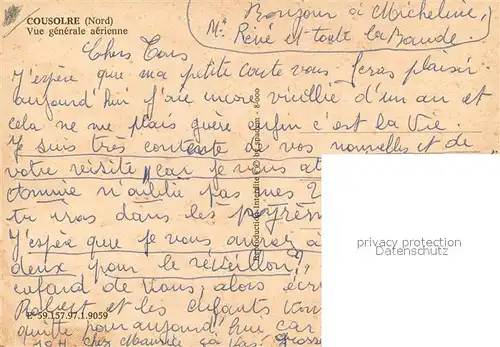 COUSOLRE (Nord)
Vue générale aérienne
Bonjour à Micheline,
Mr René et toute la Bande.
Chers Tous
J'espère que ma petite carte vous feras plaisir
aujourd'hui j'ai encore vieillie d'un an et
cela ne me plais guère enfin c'est la Vie.
Je suis très contente de vos nouvelles et de
votre visite car je vous at
n'oublie pas mes
tu iras dans les progrès
J'espère que je vous aurez à
deux pour le réveillon,
cafard de vous, alors écr
Robert et les enfants vou
quitte pour aujourd'hui car
chez Maurice ça va. grosse
Reproduction Interdite
8-000
E-59.157.97.1.9059
privacy protection
Datenschutz